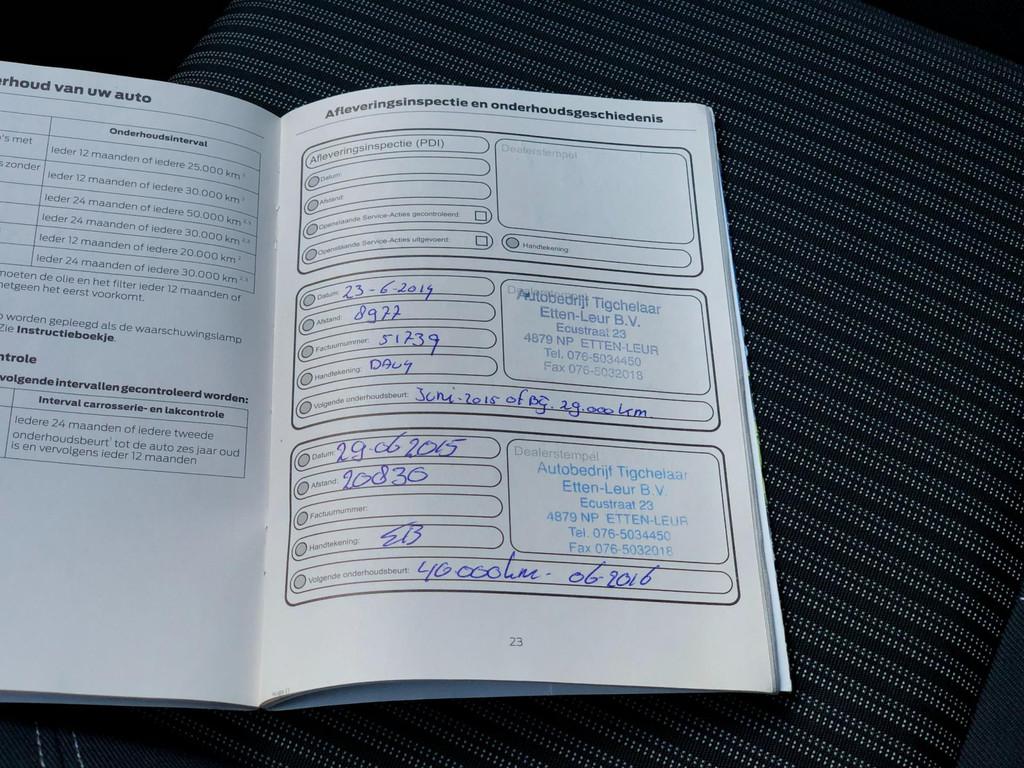 erhoud van uw auto
Onderhoudsinterval
's met
Ieder 12 maanden of iedere 25.000 km
s zonder
Ieder 12 maanden of iedere 30.000 km
Ieder 24 maanden of iedere 50.000 km
Ieder 24 maanden of iedere 30.000 km
Ieder 12 maanden of iedere 20.000 km
Ieder 24 maanden of iedere 30.000 km
moeten de olie en het filter ieder 12 maanden of
netgeen het eerst voorkomt.
worden gepleegd als de waarschuwingslamp
Zie Instructieboekje.
ntrole
volgende intervallen gecontroleerd worden:
Interval carrosserie- en lakcontrole
Iedere 24 maanden of iedere tweede
onderhoudsbeurt tot de auto zes jaar oud
is en vervolgens ieder 12 maanden
Afleveringsinspectie en onderhoudsgeschiedenis
Afleveringsinspectie (PDI)
Datum:
Afstand:
Openstaande Service-Acties gecontroleerd:
Openstaande Service-Acties uitgevoerd:
Dealerstempel
Handtekening:
Datum: 23-6-2014
Afstand: 8977
Factuurnummer: 51739
Handtekening: DAVY
Volgende onderhoudsbeurt: Juni-2015 of Bg. 29.000 km
Dealerstempel
Autobedrijf Tigchelaar
Etten-Leur B.V.
Ecustraat 23
4879 NP ETTEN-LEUR
Tel. 076-5034450
Fax 076-5032018
Datum: 29-06 2015
Afstand: 20830
Factuurnummer:
Handtekening:
Volgende onderhoudsbeurt: 40 000 km - 06-2016
Dealerstempel
Autobedrijf Tigchelaar
Etten-Leur B.V.
Ecustraat 23
4879 NP ETTEN-LEUR
Tel. 076-5034450
Fax 076-5032018
23